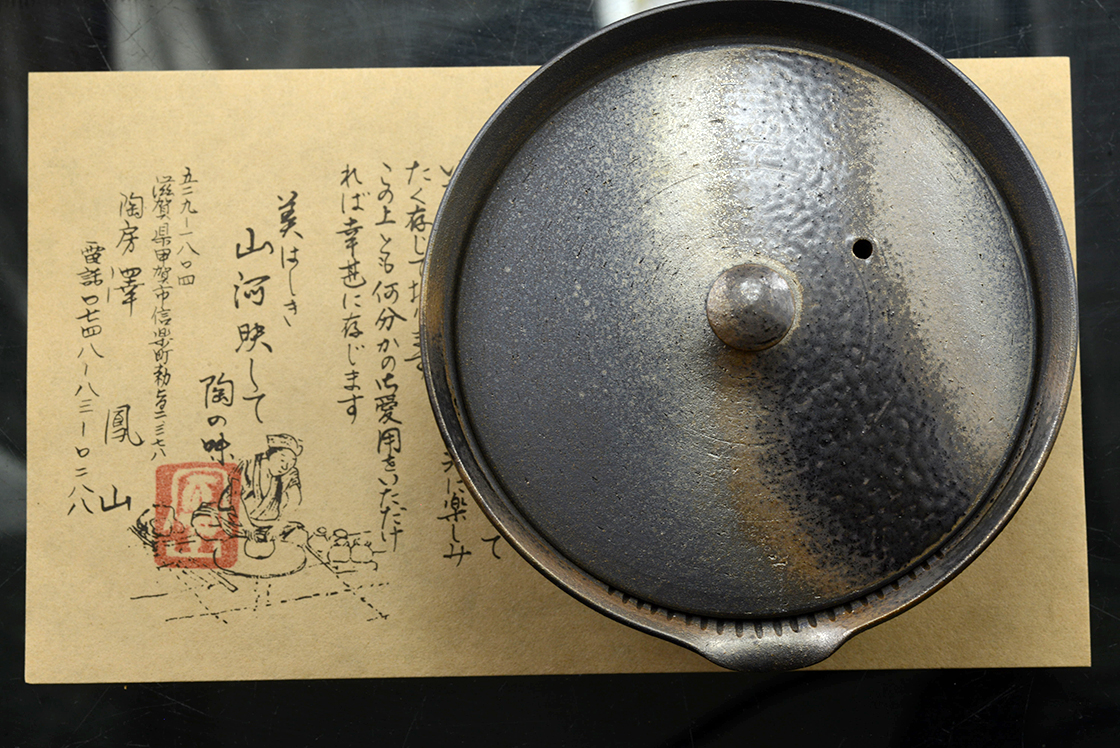 たく存じて
この上とも何分かの御愛用をいただけ
れば幸甚に存じます
美はしき
山河映して
陶の味
五二九ー一八〇四
滋賀県甲賀市信楽町勅旨二三七八
陶房澤 鳳山
電話〇七四八ー八三ー〇二八